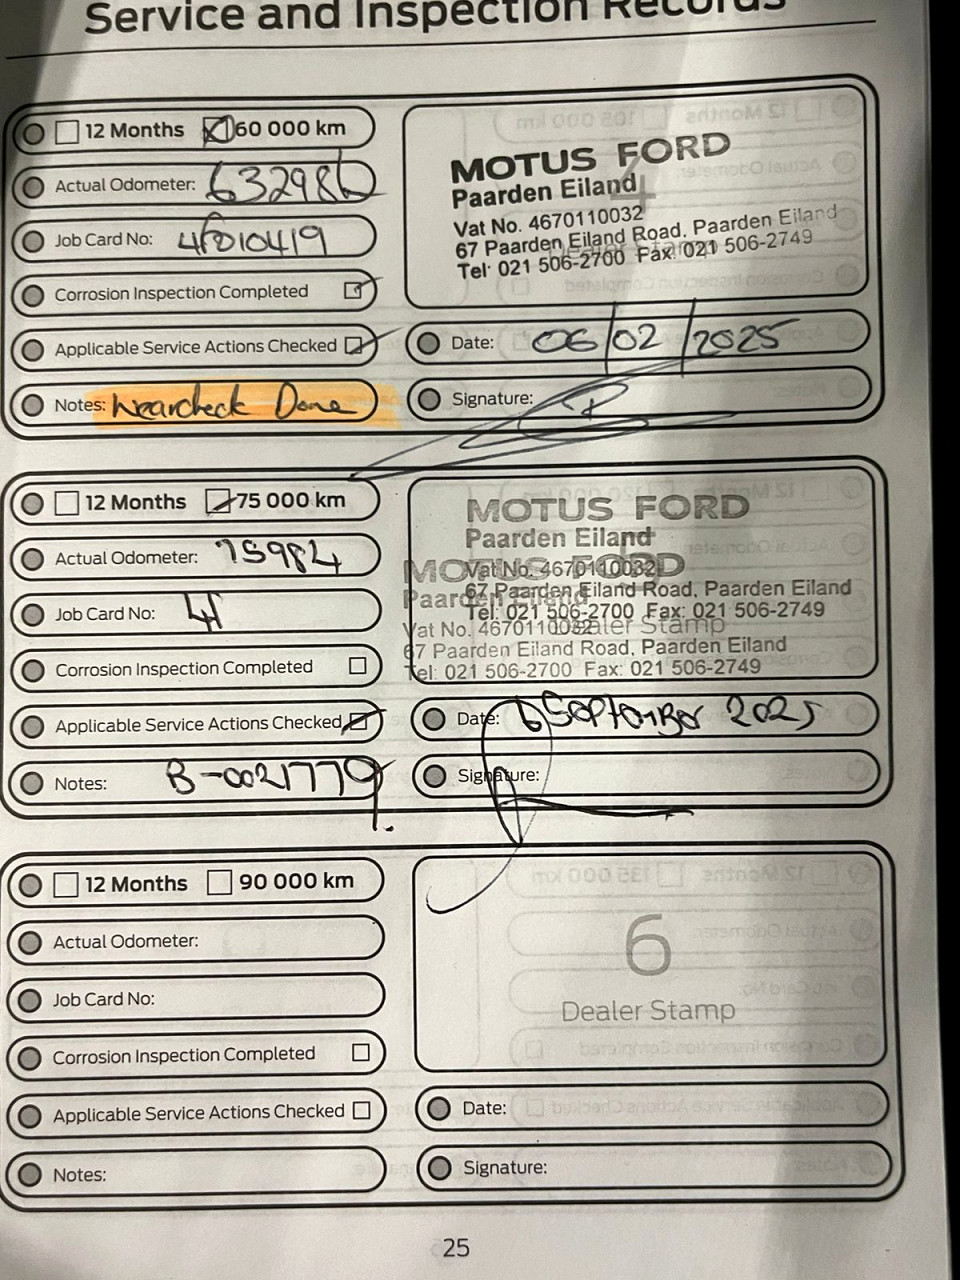 Service and Inspection Records
12 Months 60 000 km
Actual Odometer: 63298
Job Card No:
Corrosion Inspection Completed
Applicable Service Actions Checked
Notes: Wearcheck Done
MOTUS FORD
Paarden Eiland
Vat No. 4670110032
67 Paarden Eiland Road, Paarden Eiland
Tel: 021 506-2700 Fax: 021 506-2749
4
Dealer Stamp
Date: 06/02/2025
Signature:
12 Months 75 000 km
Actual Odometer: 75984
Job Card No:
Corrosion Inspection Completed
Applicable Service Actions Checked
Notes: B-0021779.
MOTUS FORD
Paarden Eiland
Vat No. 4670110032
67 Paarden Eiland Road, Paarden Eiland
Tel: 021 506-2700 Fax: 021 506-2749
MOTUS FORD
Paarden Eiland
Vat No. 4670110032
67 Paarden Eiland Road, Paarden Eiland
Tel: 021 506-2700 Fax: 021 506-2749
Dealer Stamp
Date: 6 September 2025
Signature:
12 Months 90 000 km
Actual Odometer:
Job Card No:
Corrosion Inspection Completed
Applicable Service Actions Checked
Notes:
6
Dealer Stamp
Date:
Signature:
25